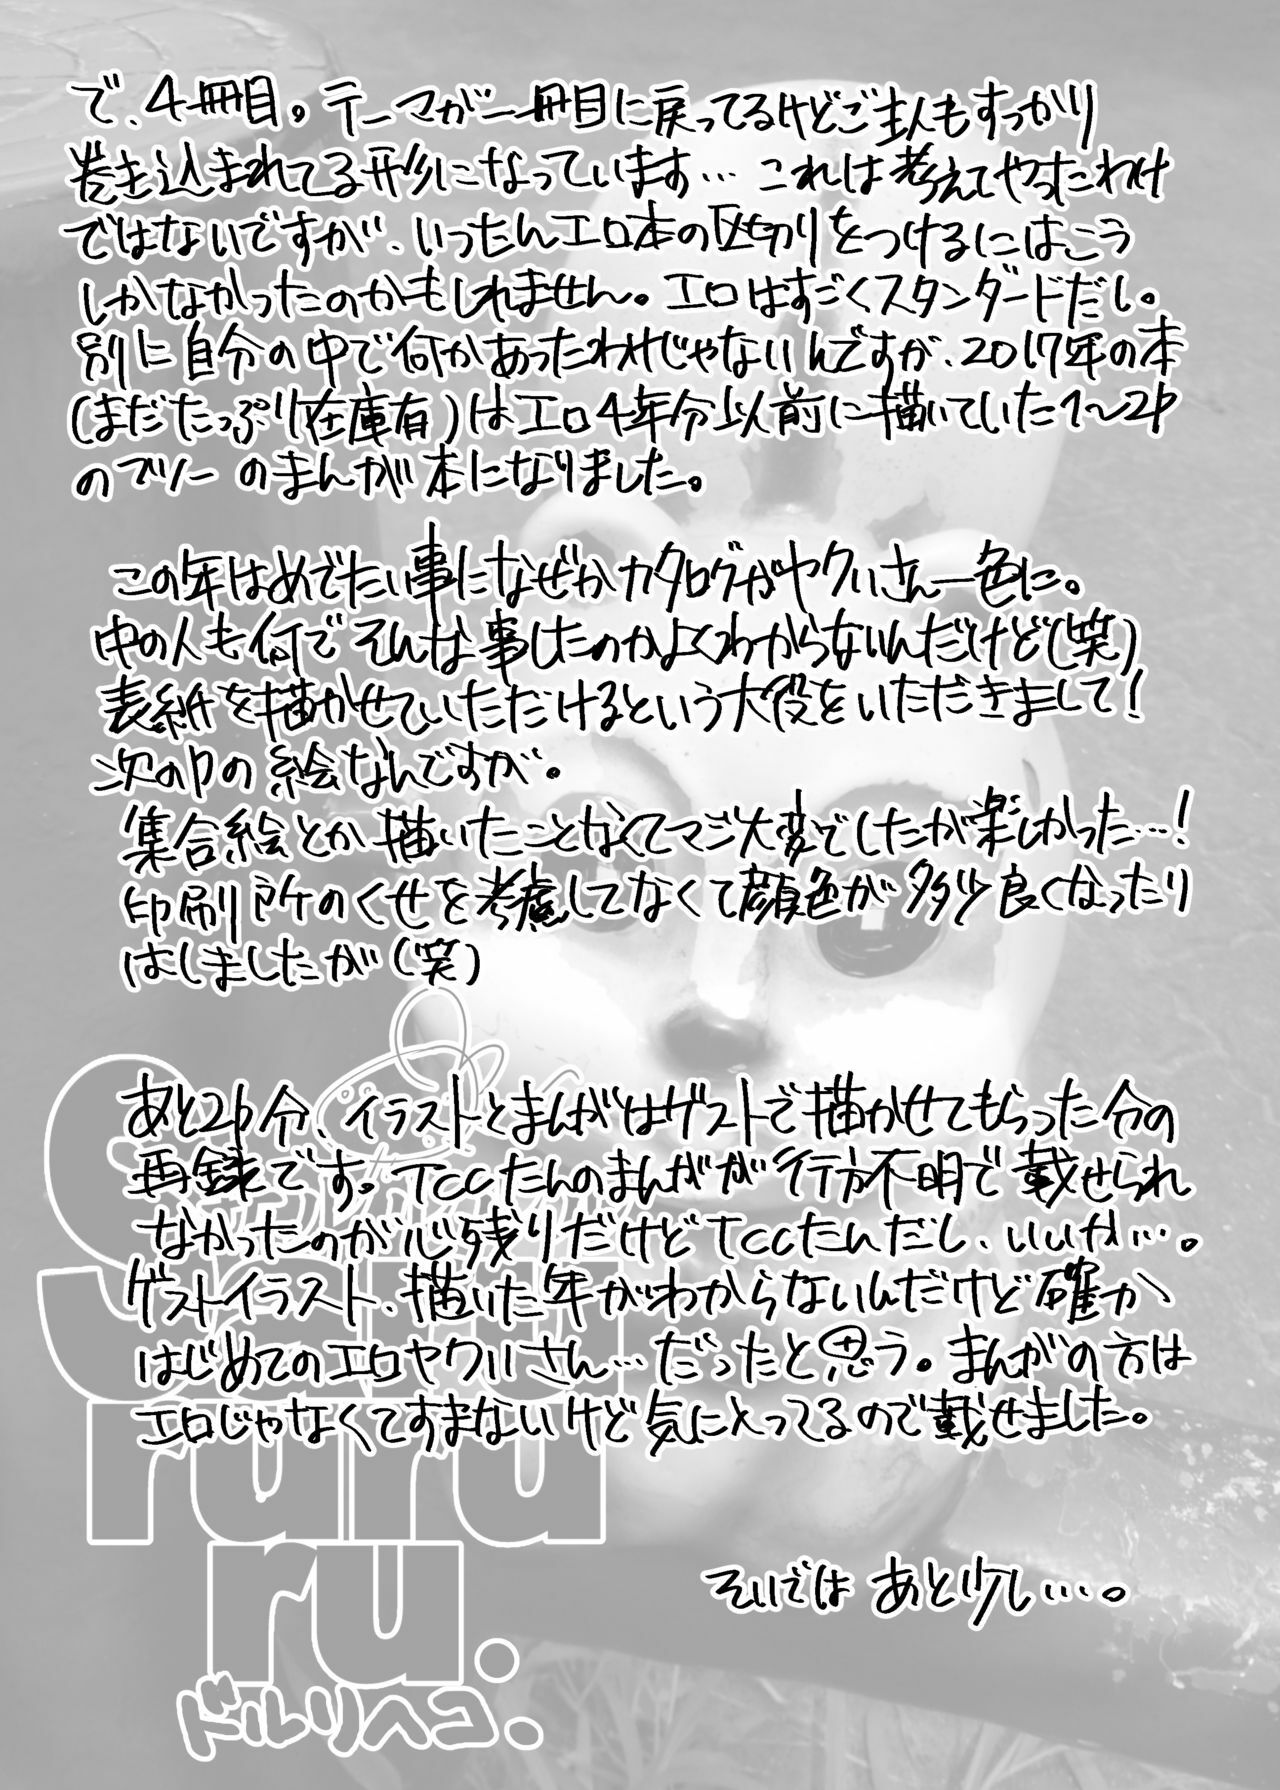 で、4冊目。テーマが一冊目に戻ってるけどご主人もすっかり
巻き込まれてる形になっています…これは考えてやったわけ
ではないですが、いったんエロ本の区切りをつけるにはこう
しかなかったのかもしれません。エロはすごくスタンダードだし。
別に自分の中で何かあったわけじゃないんですが、2017年の本
(まだたっぷり在庫有)はエロ4年分以前に描いていた1〜2p
のマンガ本になりました。
この年はめでたい事になぜかカタログがヤクいさん一色に。
中の人も何でそんな事したのかよくわからないんだけど(笑)
表紙を描かせていただけるという大役をいただきまして!
次のpの絵なんですが。
集合絵とか描いたことなくてマジ大変でしたが楽しかった…!
印刷所のくせを考慮してなくて顔色が多少良くなったり
はしましたが(笑)
あと2p分、イラストとまんがはゲストで描かせてもらった分の
再録です。Tccたんのまんがが行方不明で載せられ
なかったのが心残りだけどTccたんだし、いいか…。
ゲストイラスト、描いた年がわからないんだけど確か
はじめてのエロヤクいさん…だったと思う。まんがの方は
エロじゃなくてすまないけど気にとってるので載せました。
そいでは あと少し…。
ruru
ru.
ドルリヘコ.